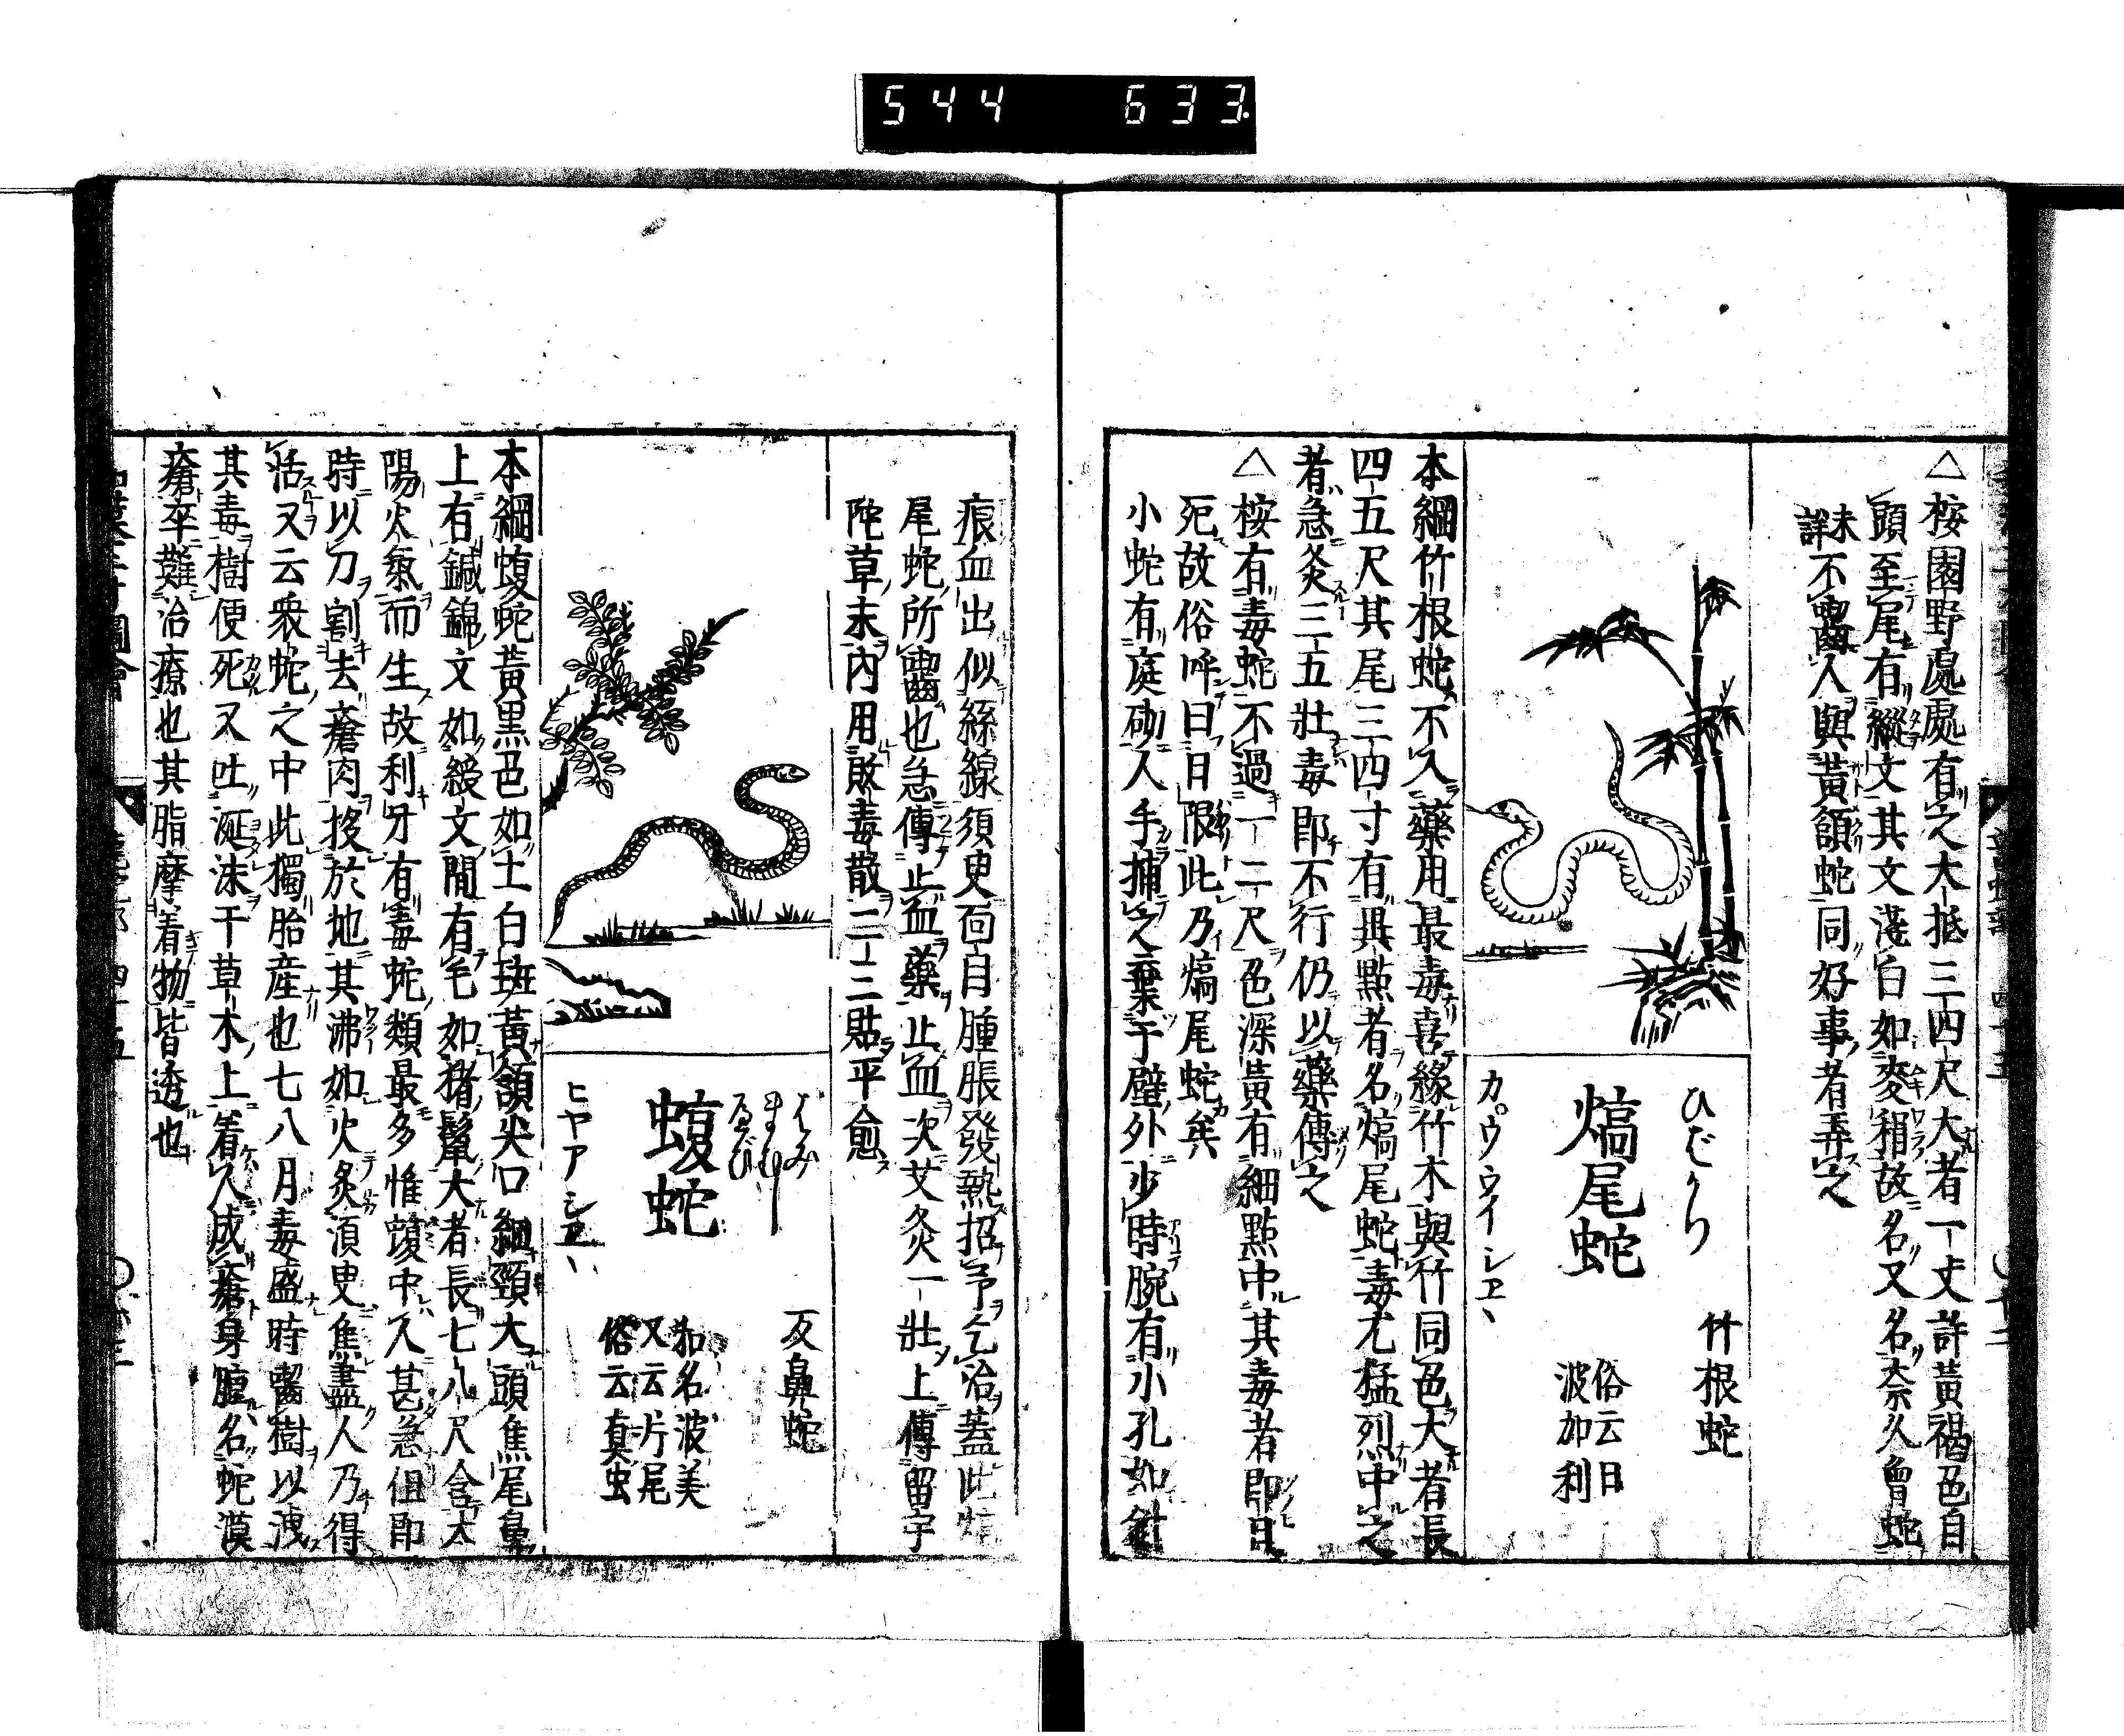 544 633.
△桉園野處處有之大抵三四尺大者一丈許黃褐色自
頭至尾有縱文其文淺白如麥稍故名又名奈久曾蛇
未詳不囓人與黃頷蛇同好事者弄之
ひばかり
熇尾蛇
カ゜ウ ウイ シヱヽ
竹根蛇
俗云日
波加利
本綱竹根蛇不入藥用最毒喜緣竹木與竹同色大者長
四五尺其尾三四寸有異點者名熇尾蛇毒尤猛烈中之
者急灸三五壯毒即不行仍以藥傅之
△桉有毒蛇不過一二尺色深黃有細點中其毒者即日
死故俗呼曰日限此乃熇尾蛇矣
小蛇有庭砌人手捕之棄于壁外少時腕有小孔如針
痕血出似絲線須臾面目腫脹發熱招予乞治蓋此熇
尾蛇所囓也急傅止血藥止血次艾灸一壯上傅留宇
陀草末內用敗毒散二三貼平愈
はみ
まむし
へび
蝮蛇
ヒヤア シヱヽ
反鼻蛇
和名波美
又云片尾
俗云真虫
本綱蝮蛇黃黑色如土白斑黃頷尖口細頸大頭焦尾鼻
上有鍼錦文如綬文間有毛如猪鬣大者長七八尺含太
陽火氣而生故利牙有毒蛇類最多惟蝮中人甚急但即
時以刀割去瘡肉投於地其沸如火炙須臾焦盡人乃得
活又云衆蛇之中此獨胎産也七八月毒盛時囓樹以洩
其毒樹便死又吐涎沫于草木上着人成瘡身腫名蛇漠
瘡卒難治療也其脂摩着物皆透也